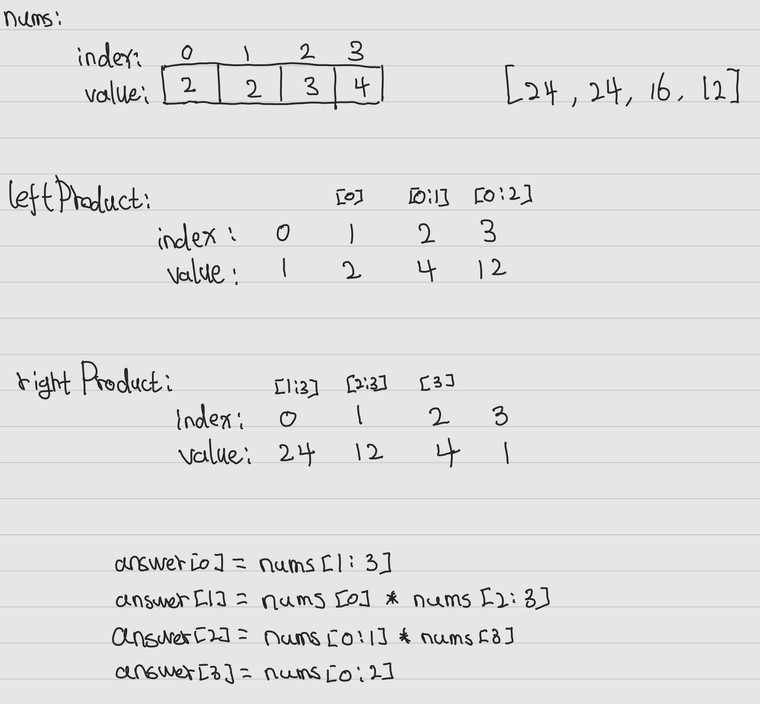 nums:
index: 0 1 2 3
value: 2 2 3 4 [24, 24, 16, 12]
leftProduct: [0] [0:1] [0:2]
index: 0 1 2 3
value: 1 2 4 12
rightProduct: [1:3] [2:3] [3]
index: 0 1 2 3
value: 24 12 4 1
answer[0] = nums[1:3]
answer[1] = nums[0] * nums[2:3]
answer[2] = nums[0:1] * nums[3]
answer[3] = nums[0:2]